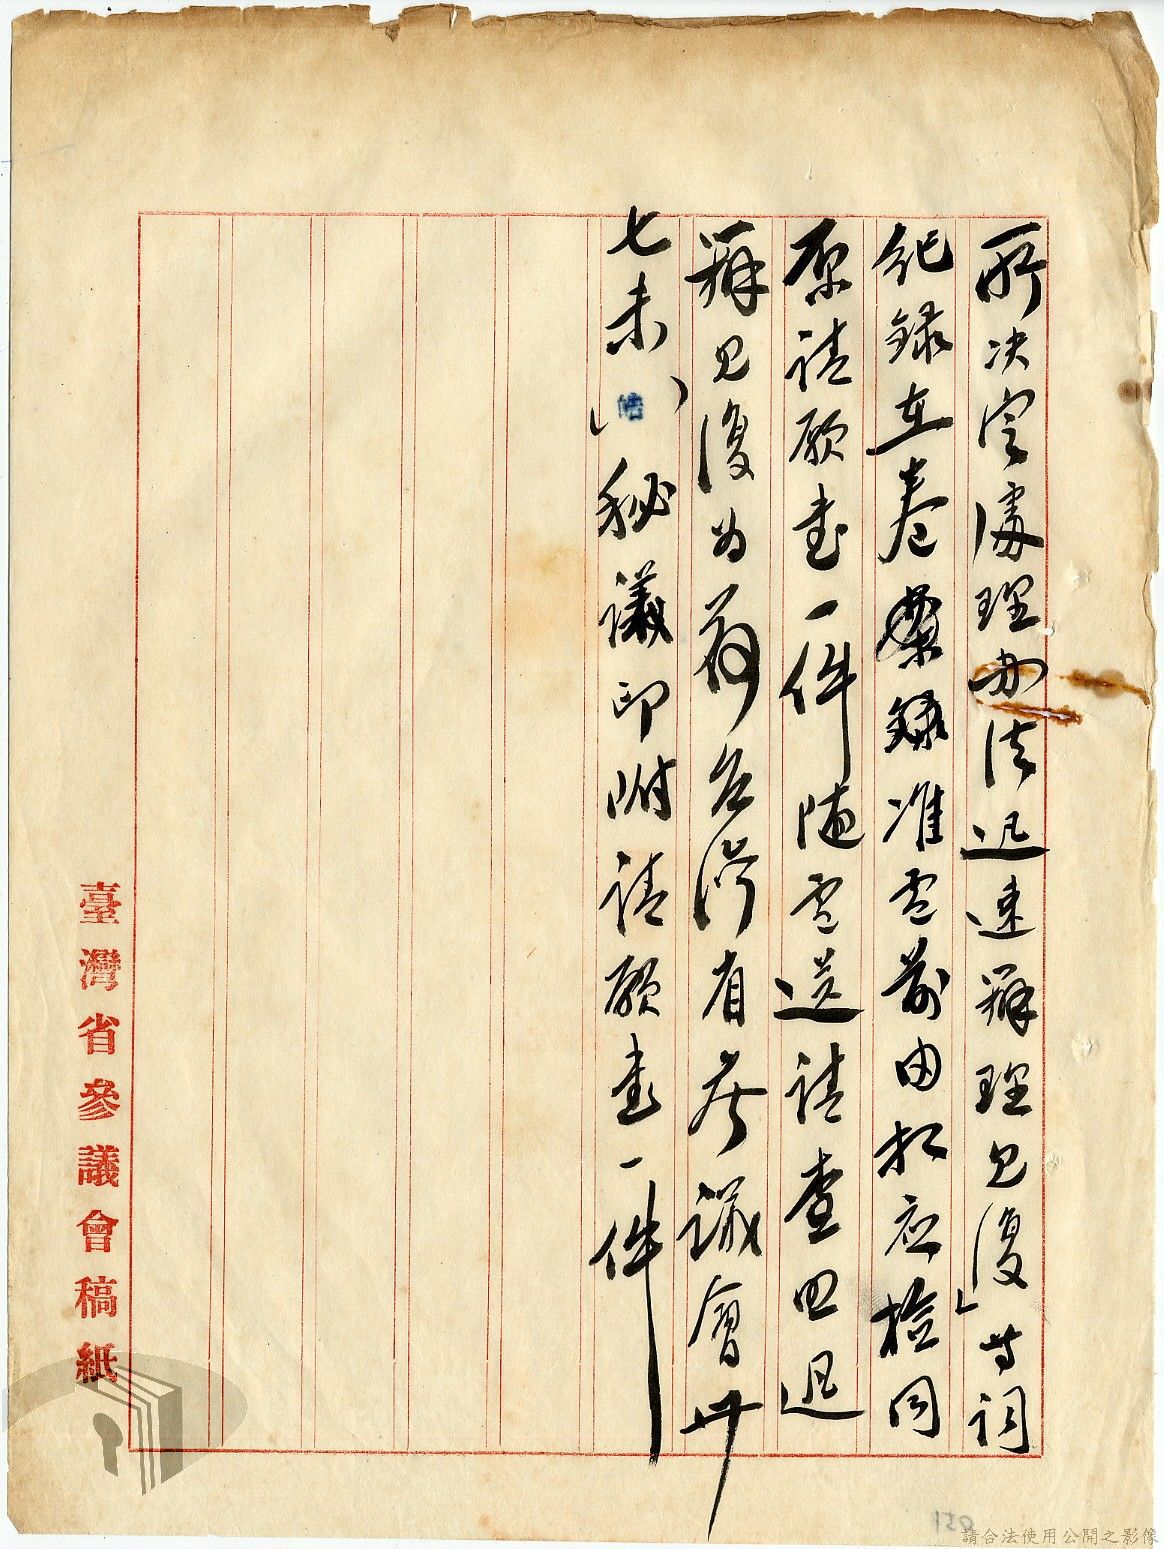 所決定處理办法迅速辦理見復」等詞
紀錄在卷，錄准電前由相应檢同
原請願書一件随電送請查照迅
辦見復為荷台灣省參議會卅
七未（皓）秘議印附請願書一件
臺灣省參議會稿紙
120
請合法使用公開之影像